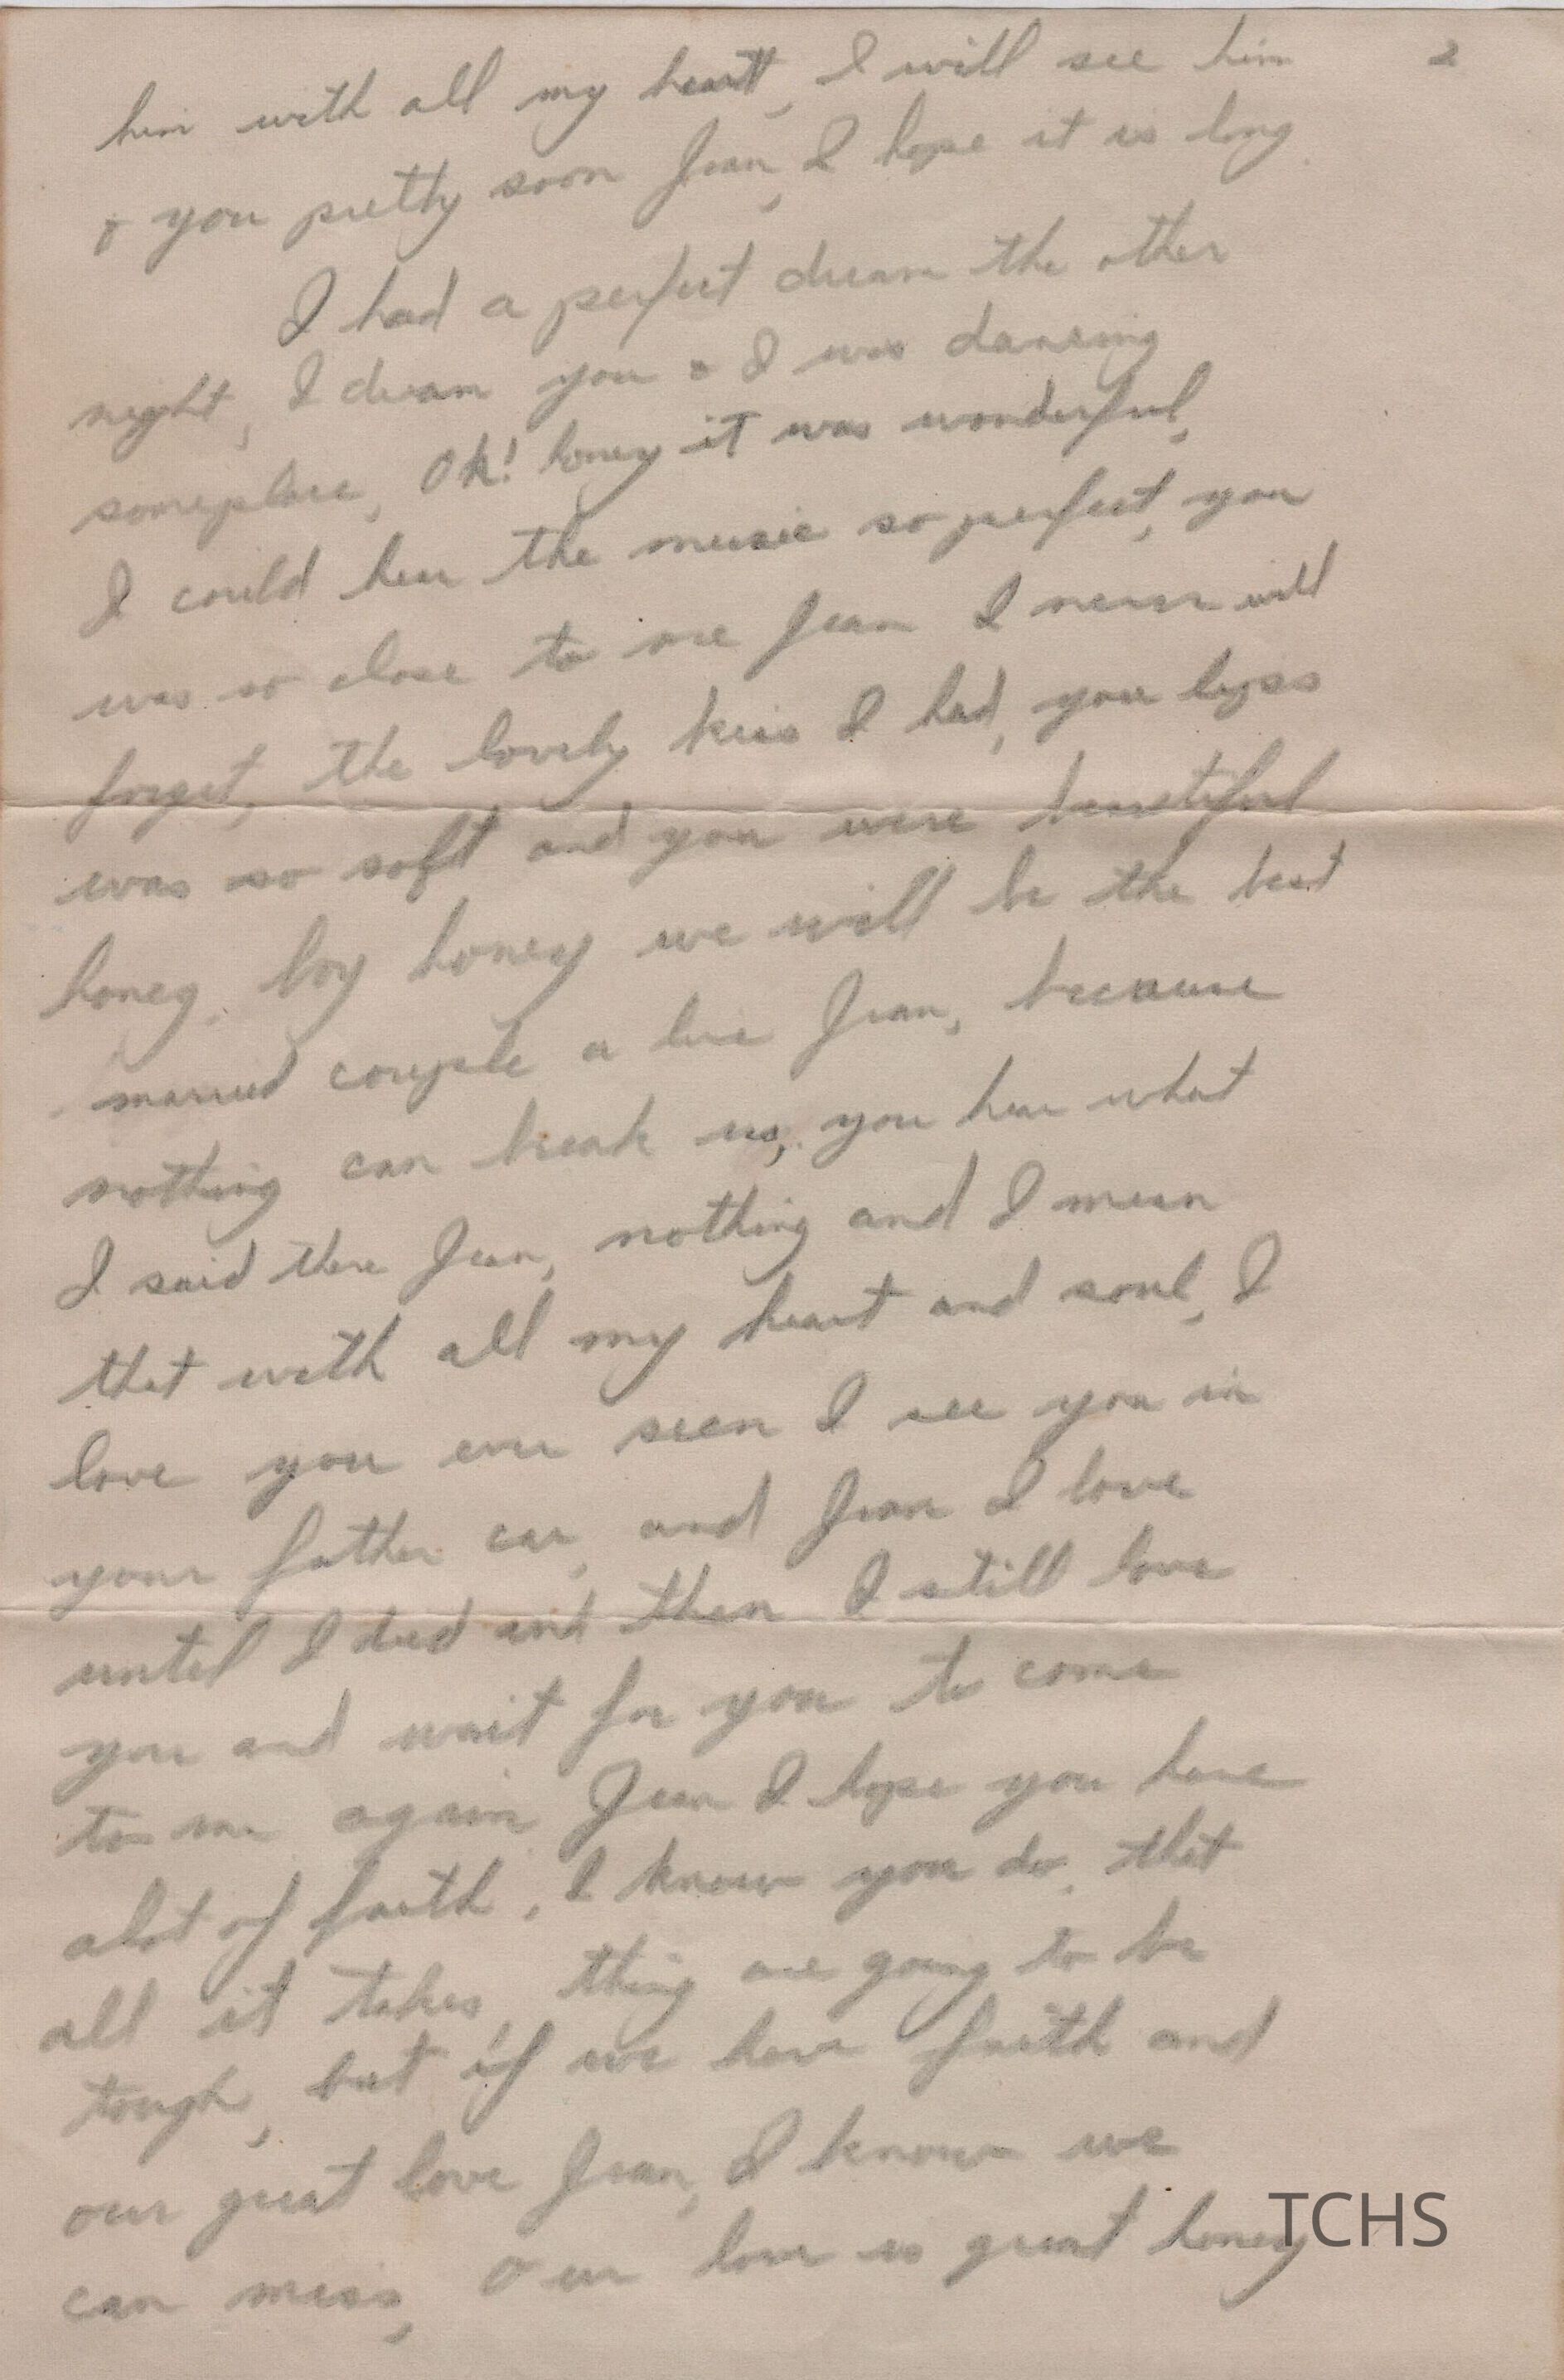 2
him with all my heart, I will see him
& you pretty soon Jean, I hope it is long.
I had a perfect dream the other
night, I dream you & I was dancing
someplace, Oh! honey it was wonderful,
I could hear the music so perfect, you
was so close to me Jean I never will
forget, the lovely kiss I had, you lips
was so soft and you were beautiful
honey, boy honey we will be the best
married couple a live Jean, because
nothing can break us, you hear what
I said there Jean, nothing and I mean
that with all my heart and soul, I
love you ever seen I see you in
your father car, and Jean I love
until I died and then I still love
you and wait for you to come
to me again Jean I hope you have
alot of faith, I know you do, that
all it takes, thing are going to be
tough, but if we have faith and
our great love Jean, I know we
can miss, Our love is great honey
TCHS